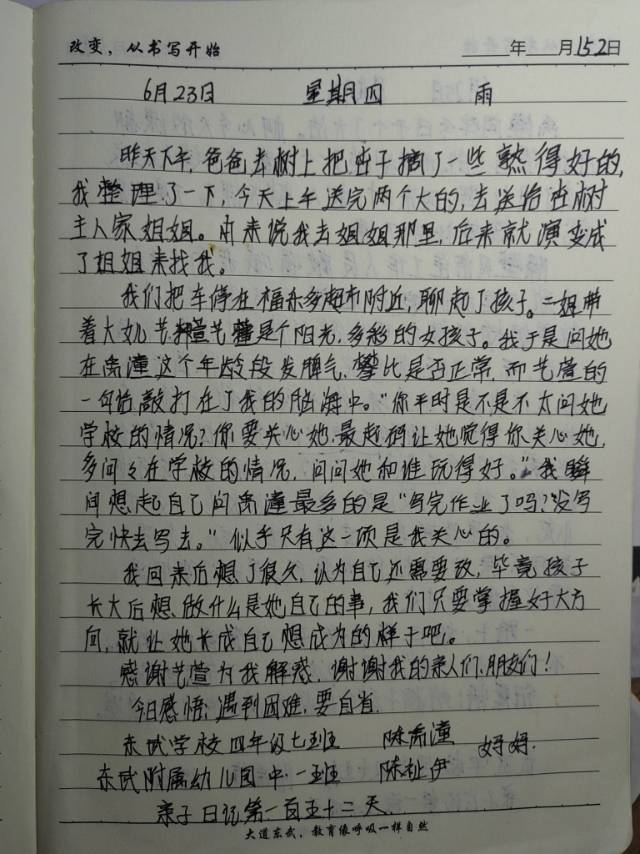 改变，从书写开始 年 月152日
6月23日 星期四 雨
昨天下午，爸爸去树上把杏子摘了一些熟得好的，
我整理了一下，今天上午送完两个大的，去送给杏树
主人家姐姐。本来说我去姐姐那里，后来就演变成
了姐姐来找我。
我们把车停在福乐多超市附近，聊起了孩子。二姐带
着大女儿艺萱，艺萱是个阳光，多彩的女孩子。我于是问她
在希潼这个年龄段发脾气，攀比是否正常，而艺萱的
一句话敲打在了我的脑海中。“你平时是不是不太问她
学校的情况？你要关心她，最起码让她觉得你关心她，
多问问在学校的情况，问问她和谁玩得好。”我瞬
间想起自己问希潼最多的是“写完作业了吗？没写
完快去写去。”似乎只有这一项是我关心的。
我回来后想了很久，认为自己还需要改，毕竟孩子
长大后想做什么是她自己的事，我们只要掌握好大方
向，就让她长成自己想成为的样子吧。
感谢艺萱为我解惑，谢谢我的亲人们、朋友们！
今日感悟：遇到困难，要自省。
东武学校四年级七班 陈希潼 妈妈
东武附属幼儿园中一班 陈祉伊
亲子日记第一百五十二天
大道东武，教育像呼吸一样自然